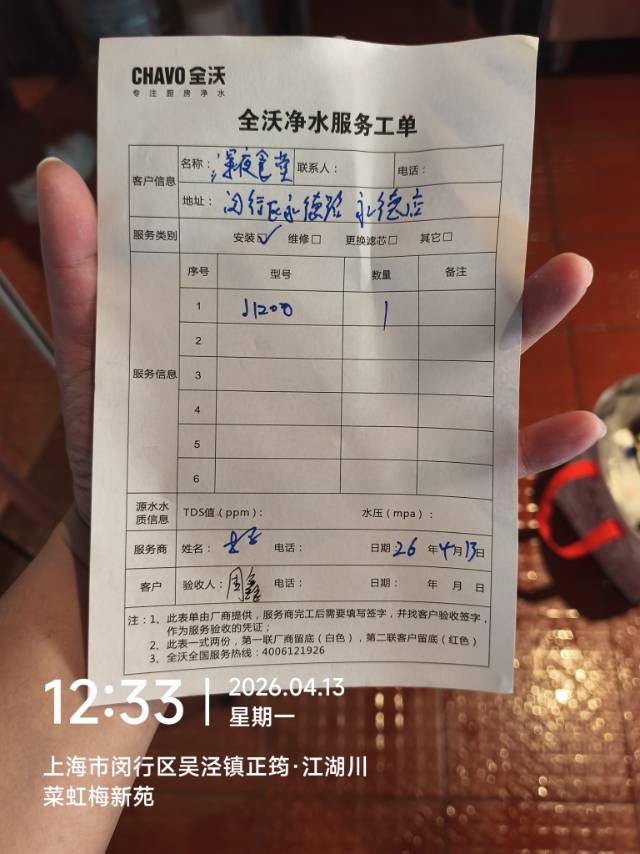 CHAVO 全沃
专注厨房净水
全沃净水服务工单
客户信息 名称：深夜食堂 联系人： 电话：
地址：闵行区永德路 永德店
服务类别 安装☑ 维修□ 更换滤芯□ 其它□
服务信息 序号 型号 数量 备注
1 J1200 1
2
3
4
5
6
源水水质信息 TDS值（ppm）： 水压（mpa）：
服务商 姓名： 电话： 日期 26 年 4 月 13 日
客户 验收人： 电话： 日期： 年 月 日
注：1、此表单由厂商提供，服务商完工后需要填写签字，并找客户验收签字，
作为服务验收的凭证；
2、此表一式两份，第一联厂商留底（白色），第二联客户留底（红色）
3、全沃全国服务热线：4006121926
12:33 2026.04.13
星期一
上海市闵行区吴泾镇正筠·江湖川
菜虹梅新苑